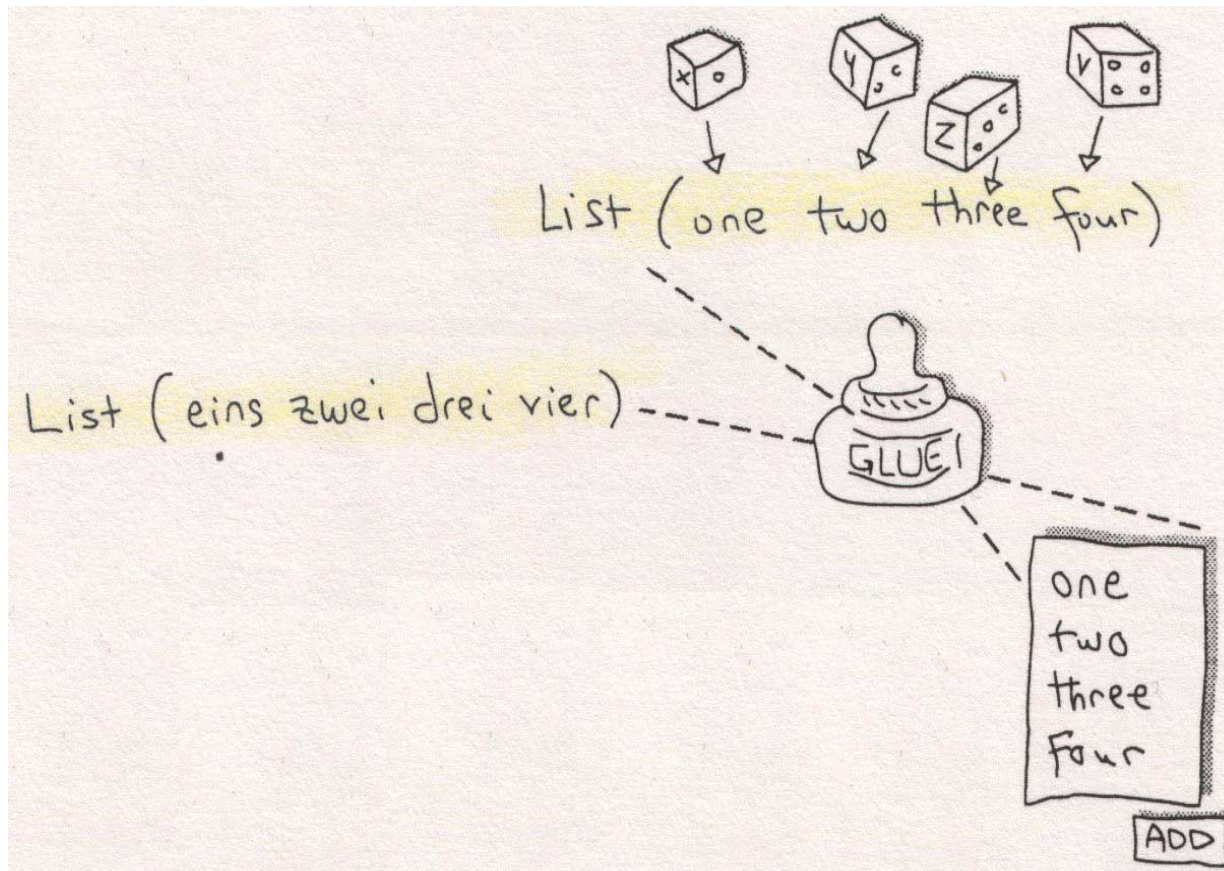 X Y Z V
List (one two three four)
List (eins zwei drei vier)
GLUE!
one
two
three
four
ADD